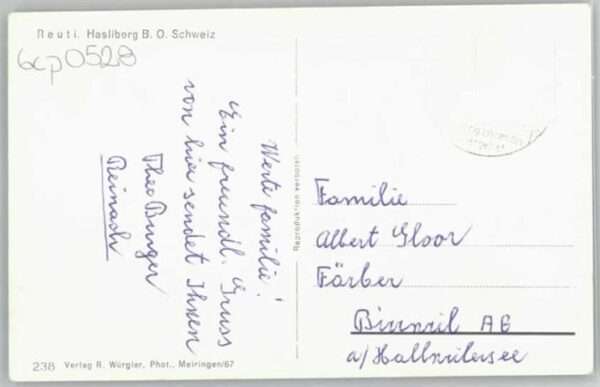 Reuti. Hasliberg B. O. Schweiz
6cp0528
Werte Familie!
Ein freundl. Gruss
von hier sendet Ihnen
Theo Burger
Reinach
Reproduktion verboten
Familie
Albert Gloor
Färber
Birrwil AG
a/Hallwilersee
238 Verlag R. Würgler, Phot., Meiringen/67